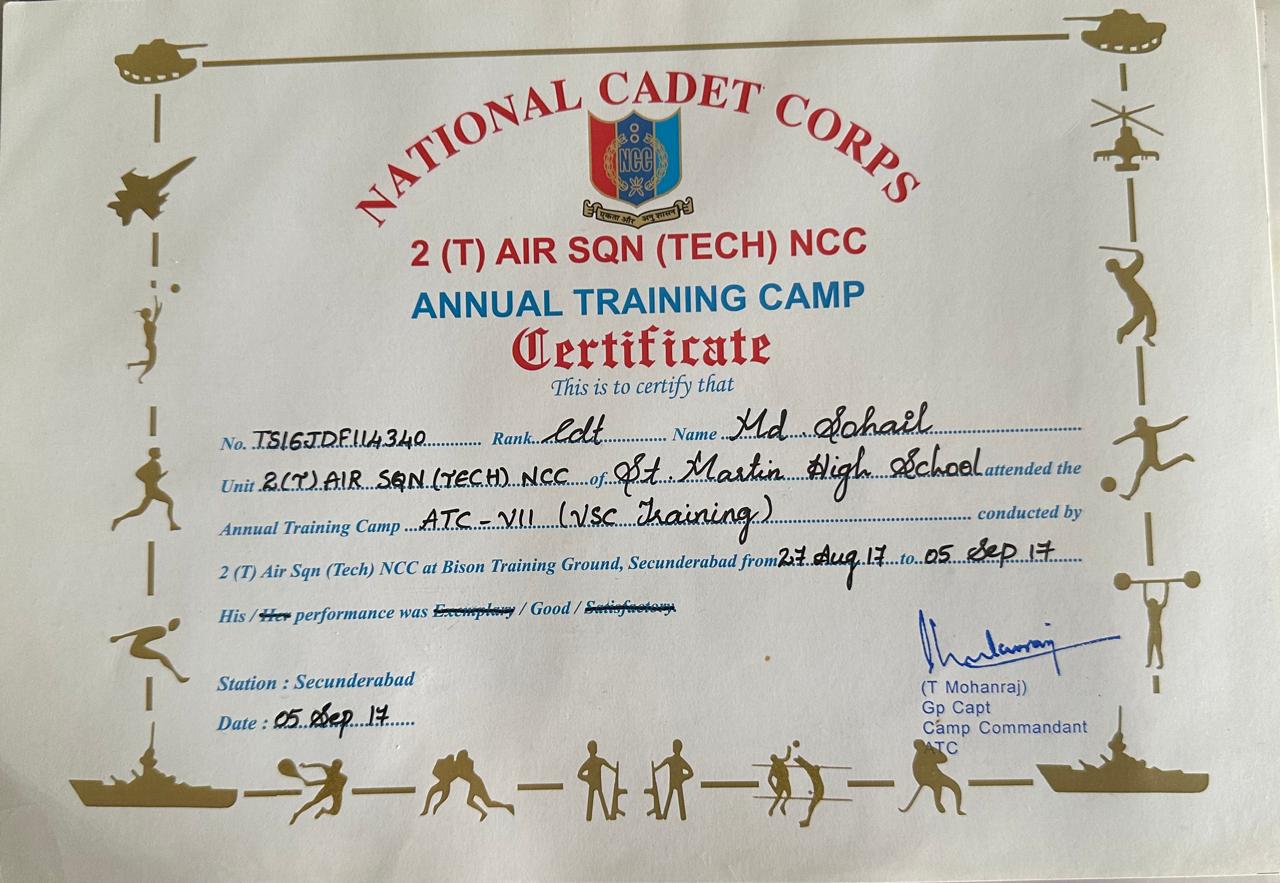 NATIONAL CADET CORPS
NCC
एकता और अनुशासन
2 (T) AIR SQN (TECH) NCC
ANNUAL TRAINING CAMP
Certificate
This is to certify that
No. TS16JDF114340 Rank Cdt Name Md. Sohail
Unit 2(T) AIR SQN (TECH) NCC of St. Martin High School attended the
Annual Training Camp ATC - VII (VSC Training) conducted by
2 (T) Air Sqn (Tech) NCC at Bison Training Ground, Secunderabad from 27 Aug 17 to 05 Sep 17
His / Her performance was Exemplary / Good / Satisfactory
Station : Secunderabad
Date : 05 Sep 17
(T Mohanraj)
Gp Capt
Camp Commandant
ATC